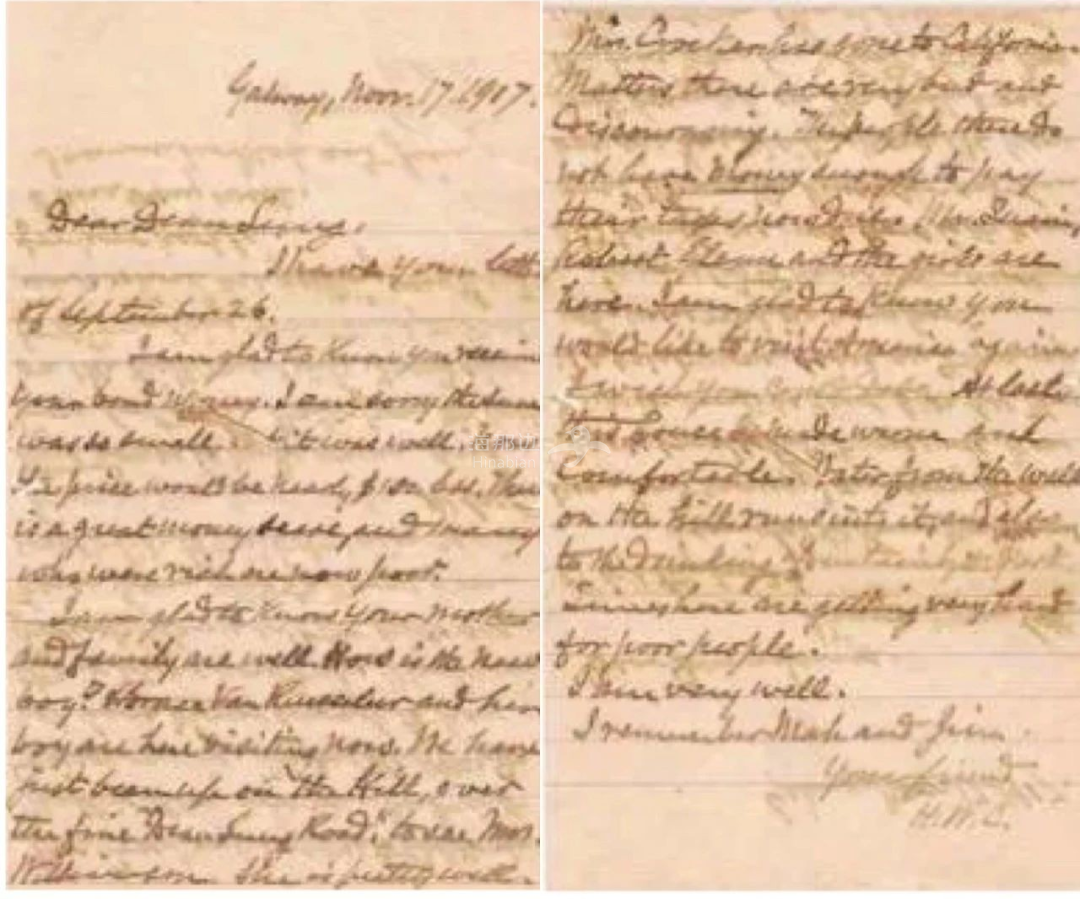 Galway, Nov. 17. 1907.
Dear Dean Lung,
I have your
of September 26.
I am glad to know you receiv
your bond money. I am sorry the sum
was so small. it was well.
price would be
is a great money here, and many
were rich are now poor.
I am glad to know your mother
and family are well. How is the new
boy? Horace Van and his
boy are here visiting now. We have
just been up on the Hill, over
the fine "Dean Lung Road", to see Mrs.
Wilkinson. She is pretty well.
Mrs. has gone to California.
Matters there are very bad and
discouraging. The people there do
not have money enough to pay
their now due. Mr.
and the girls are
here. I am glad to know you
would like to visit America again
I wish you At last
this house made warm and
Comfortable. Water from the well
on the hill runs into it, and also
to the
Times here are getting very hard
for poor people.
I am very well.
I remember Mah and Jim.
Your friend